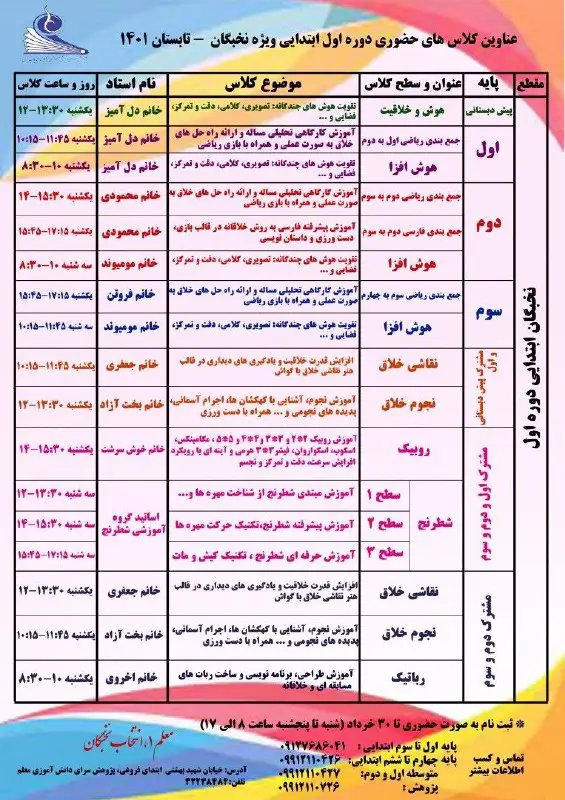 عناوین کلاس های حضوری دوره اول ابتدایی ویژه نخبگان - تابستان ۱۴۰۱
مقطع
پایه
عنوان و سطح کلاس
موضوع کلاس
نام استاد
روز و ساعت کلاس
نخبگان ابتدایی دوره اول
پیش دبستانی
هوش و خلاقیت
تقویت هوش های چندگانه: تصویری، کلامی، دقت و تمرکز،
فضایی و ...
خانم دل آمیز
یکشنبه ۱۳:۳۰-۱۲
اول
جمع بندی ریاضی اول به دوم
آموزش کارگاهی تحلیلی مساله و ارائه راه حل های
خلاق به صورت عملی و همراه با بازی ریاضی
خانم دل آمیز
یکشنبه ۱۱:۴۵-۱۰:۱۵
هوش افزا
تقویت هوش های چندگانه: تصویری، کلامی، دقت و تمرکز،
فضایی و ...
خانم دل آمیز
یکشنبه ۱۰-۸:۳۰
دوم
جمع بندی ریاضی دوم به سوم
آموزش کارگاهی تحلیلی مساله و ارائه راه حل های خلاق به
صورت عملی و همراه با بازی ریاضی
خانم محمودی
یکشنبه ۱۵:۳۰-۱۴
جمع بندی فارسی دوم به سوم
آموزش پیشرفته فارسی به روش خلاقانه در قالب بازی،
دست ورزی و داستان نویسی
خانم محمودی
یکشنبه ۱۷:۱۵-۱۵:۴۵
هوش افزا
تقویت هوش های چندگانه: تصویری، کلامی، دقت و تمرکز،
فضایی و ...
خانم مومیوند
سه شنبه ۱۰-۸:۳۰
سوم
جمع بندی ریاضی سوم به چهارم
آموزش کارگاهی تحلیلی مساله و ارائه راه حل های خلاق به
صورت عملی و همراه با بازی ریاضی
خانم فروتن
یکشنبه ۱۷:۱۵-۱۵:۴۵
هوش افزا
تقویت هوش های چندگانه: تصویری، کلامی، دقت و تمرکز،
فضایی و ...
خانم مومیوند
سه شنبه ۱۱:۴۵-۱۰:۱۵
مشترک پیش دبستانی
و اول
نقاشی خلاق
افزایش قدرت خلاقیت و یادگیری های دیداری در قالب
هنر نقاشی خلاق با گواش
خانم جعفری
یکشنبه ۱۱:۴۵-۱۰:۱۵
نجوم خلاق
آموزش نجوم، آشنایی با کهکشان ها، اجرام آسمانی،
پدیده های نجومی و ... همراه با دست ورزی
خانم بخت آزاد
یکشنبه ۱۳:۳۰-۱۲
مشترک اول و دوم و سوم
روبیک
آموزش روبیک ۲*۲ و ۳*۳ و ۴*۴ و ۵*۵ ، مگامینکس،
اسکوب، اسکواروان، فیشر۳*۳ هرمی و آینه ای با رویکرد
افزایش سرعت، دقت و تمرکز و تجسم
خانم خوش سرشت
یکشنبه ۱۵:۳۰-۱۴
شطرنج
سطح ۱
آموزش مبتدی شطرنج از شناخت مهره ها و...
اساتید گروه
آموزشی شطرنج
سه شنبه ۱۳:۳۰-۱۲
سطح ۲
آموزش پیشرفته شطرنج،تکنیک حرکت مهره ها
سه شنبه ۱۵:۳۰-۱۴
سطح ۳
آموزش حرفه ای شطرنج ، تکنیک کیش و مات
سه شنبه ۱۷:۱۵-۱۵:۴۵
مشترک دوم و سوم
نقاشی خلاق
افزایش قدرت خلاقیت و یادگیری های دیداری در قالب
هنر نقاشی خلاق با گواش
خانم جعفری
یکشنبه ۱۳:۳۰-۱۲
نجوم خلاق
آموزش نجوم، آشنایی با کهکشان ها، اجرام آسمانی،
پدیده های نجومی و ... همراه با دست ورزی
خانم بخت آزاد
یکشنبه ۱۱:۴۵-۱۰:۱۵
رباتیک
آموزش طراحی، برنامه نویسی و ساخت ربات های
مسابقه ای و خلاقانه
خانم اخروی
یکشنبه ۱۰-۸:۳۰
* ثبت نام به صورت حضوری تا ۳۰ خرداد (شنبه تا پنجشنبه ساعت ۸ الی ۱۷)
تماس و کسب
اطلاعات بیشتر
پایه اول تا سوم ابتدایی : ۰۹۱۲۷۶۸۶۰۴۱
پایه چهارم تا ششم ابتدایی: ۰۹۹۱۲۱۱۰۴۲۶
متوسطه اول و دوم: ۰۹۹۱۲۱۱۰۴۲۷
پژوهش : ۰۹۹۱۲۱۱۰۷۲۶
معلم ۱، انتخاب نخبگان
آدرس: خیابان شهید بهشتی ابتدای فروهی، پژوهش سرای دانش آموزی معلم
تلفن: ۳۳۲۳۸۴۸۴